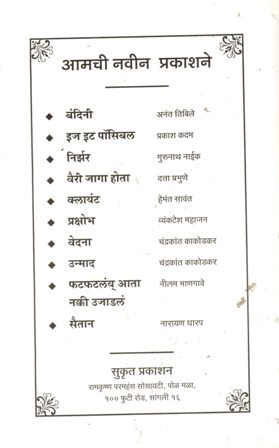 आमची नवीन प्रकाशने
◆ बंदिनी अनंत तिबिले
◆ इज इट पॉसिबल प्रकाश कदम
◆ निर्झर गुरुनाथ नाईक
◆ वैरी जागा होता दत्ता प्रभुणे
◆ क्लायंट हेमंत सावंत
◆ प्रक्षोभ व्यंकटेश महाजन
◆ वेदना चंद्रकांत काकोडकर
◆ उन्माद चंद्रकांत काकोडकर
◆ फटफटलंय् आता नीलम माणगावे
नक्की उजाडलं
◆ सैतान नारायण धारप
सुकृत प्रकाशन
रामकृष्ण परमहंस सोसायटी, पोळ मळा,
१०० फुटी रोड, सांगली १६